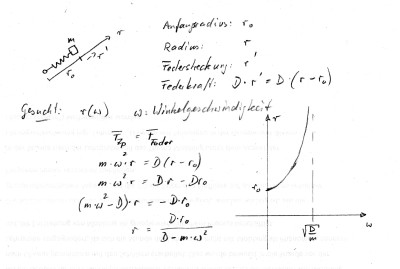 Anfangsradius: r₀
m r
Radius: r
r₀ r'
Federstreckung: r'
Federkraft: D·r' = D·(r-r₀)
Gesucht: r(ω) ω: Winkelgeschwindigkeit
F_Zp = F_Feder
m·ω²·r = D(r-r₀)
m·ω²·r = D·r - D r₀
(m·ω²-D)·r = -D·r₀
r = D·r₀ / (D-m·ω²)
r
r₀
ω
√(D/m)